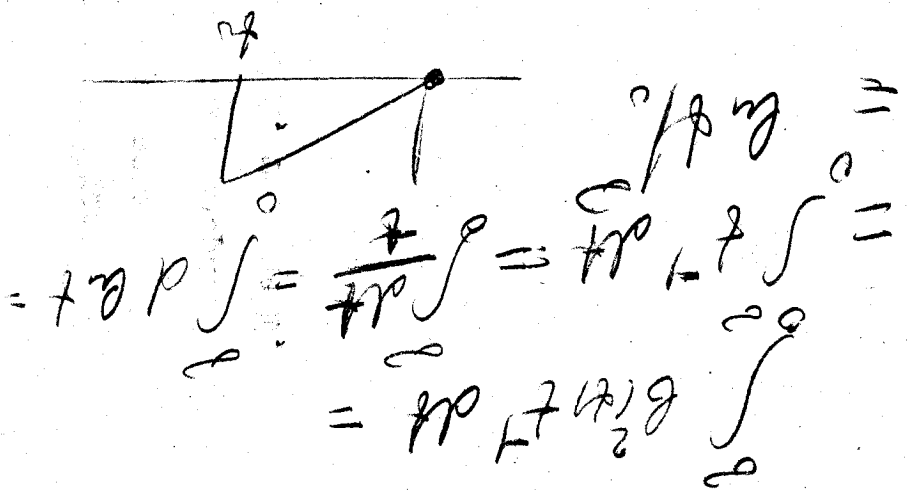 ∫₀^∞ B²(t) t⁻¹ dt =
= ∫₀^∞ t⁻¹ dt = ∫₀^∞ dt/t = ∫₀^∞ d ln t =
= ln t |₀^∞